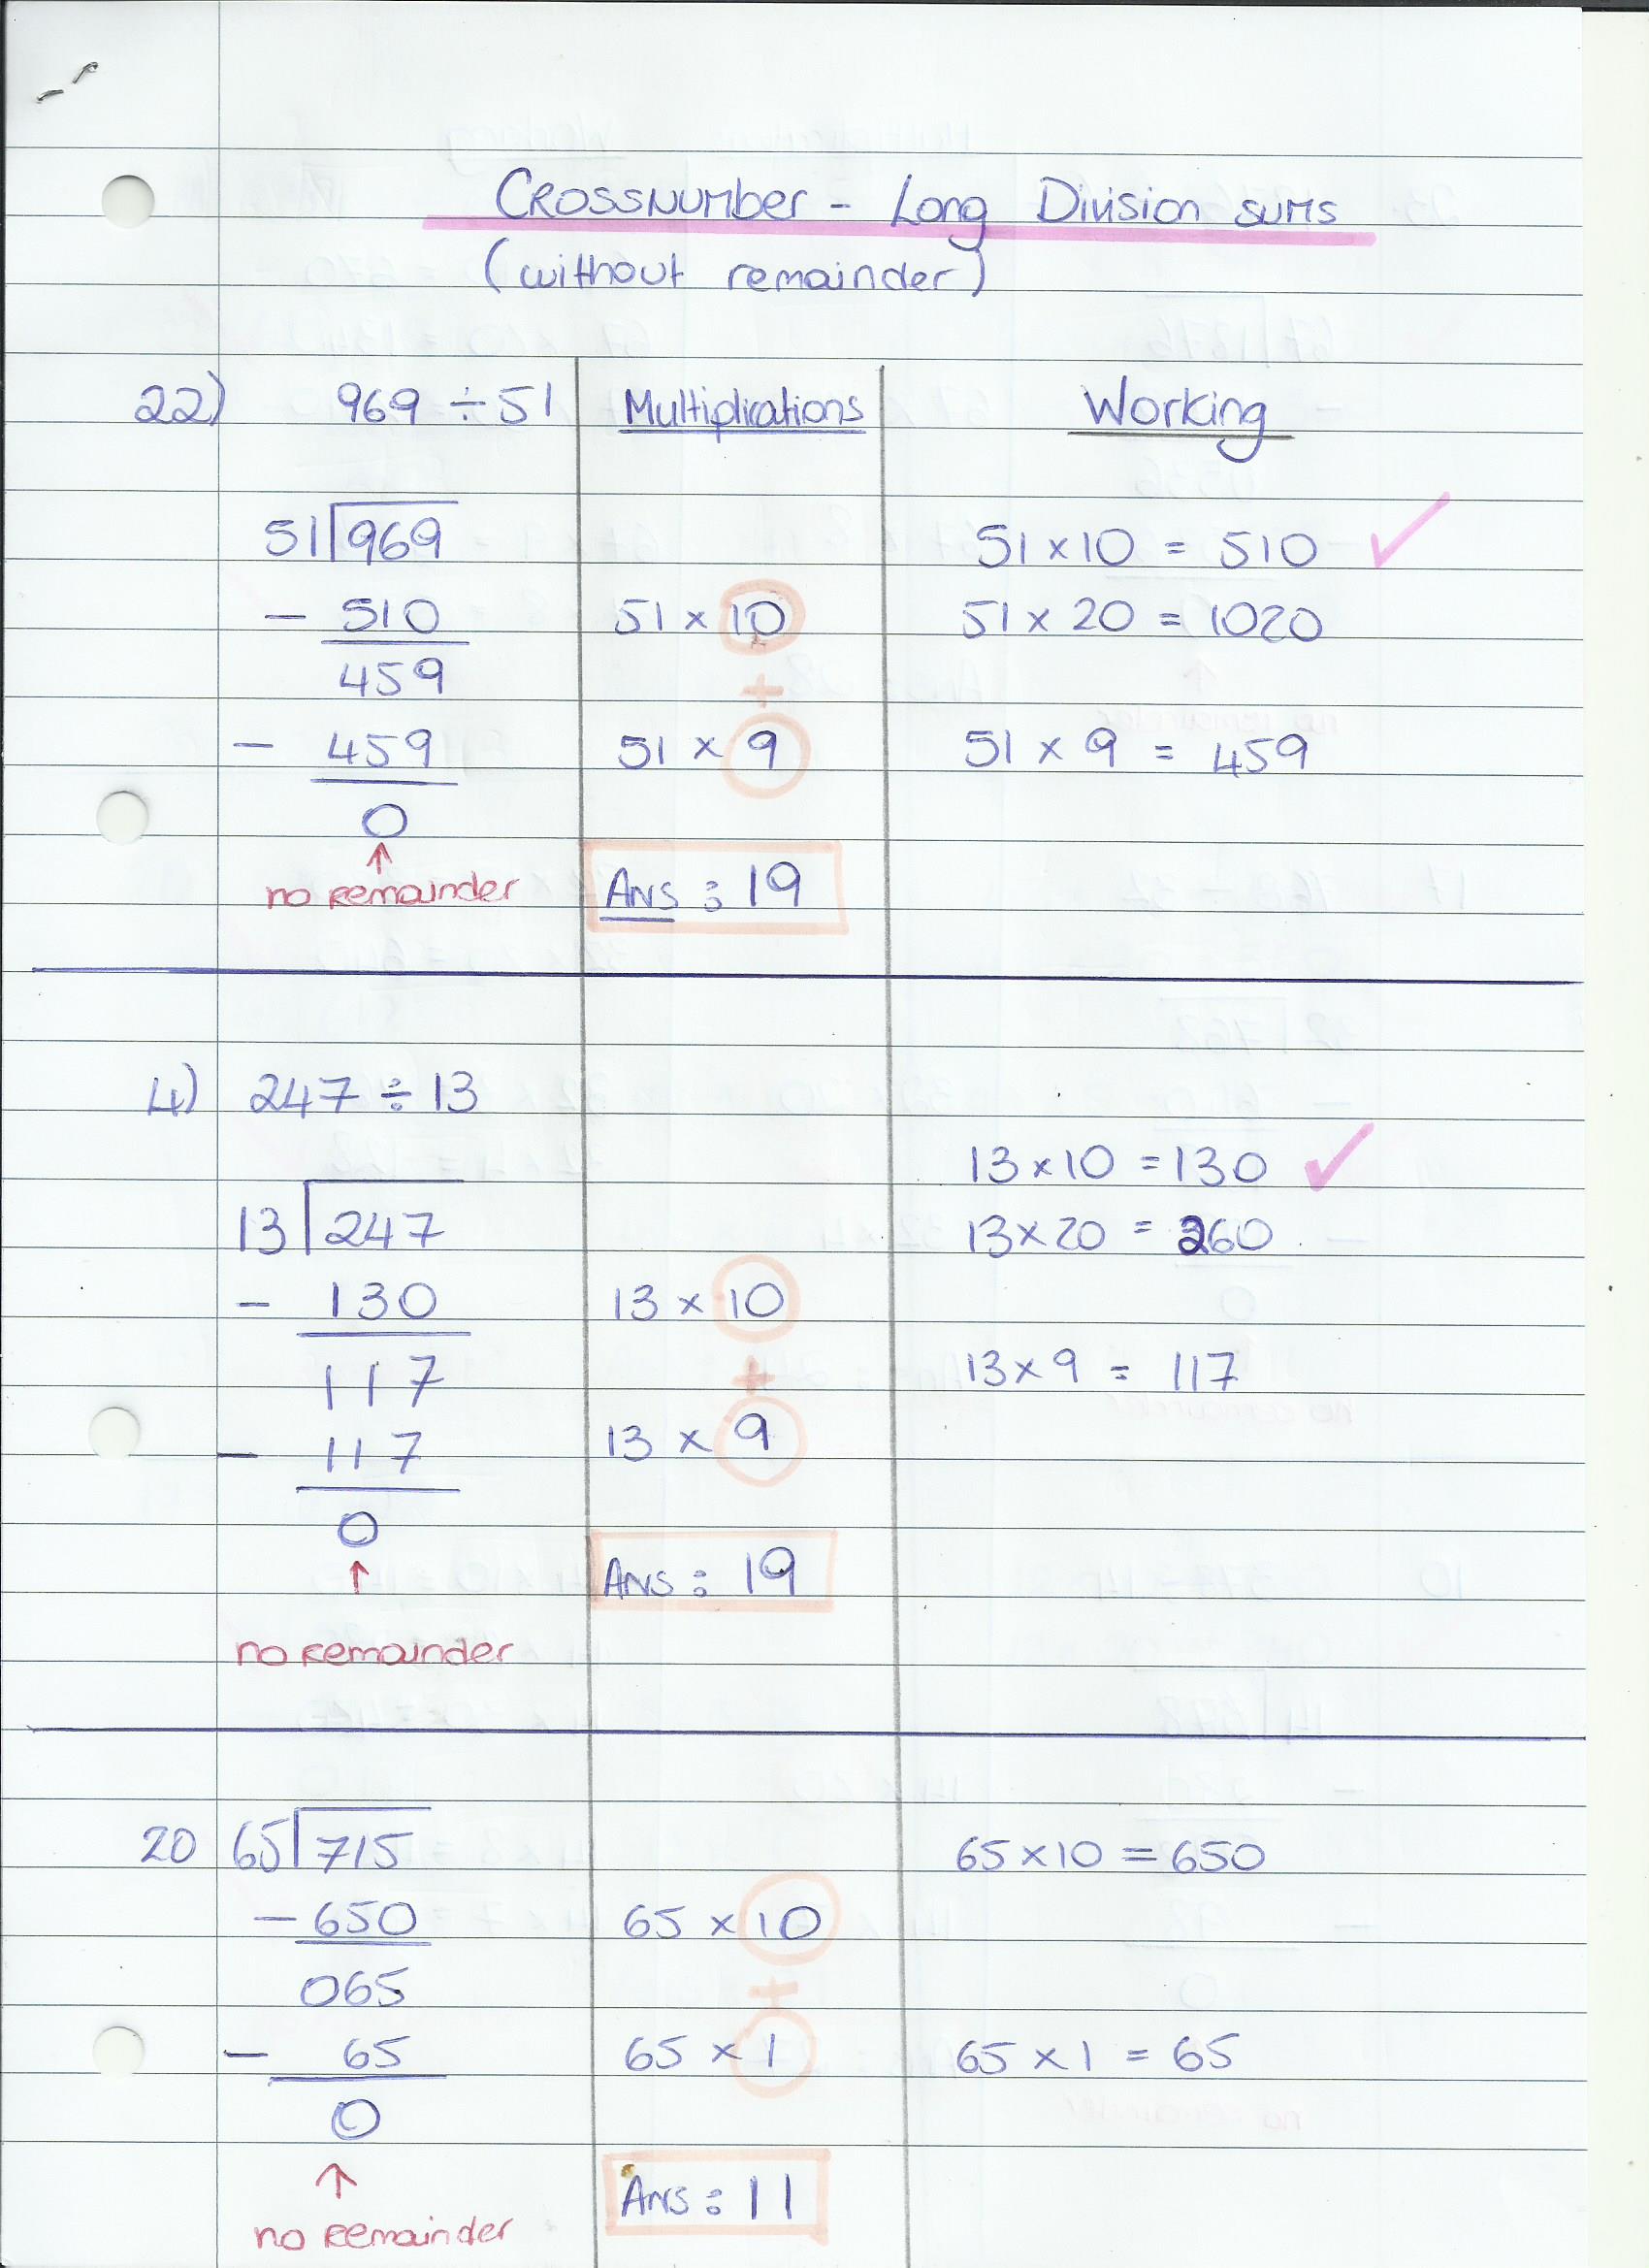 CROSSNUMBER - Long Division sums
(without remainder)
22) 969 ÷ 51 Multiplications Working
51 969 51 × 10 = 510 ✓
- 510 51 × 10 51 × 20 = 1020
459 +
- 459 51 × 9 51 × 9 = 459
0
↑
no remainder Ans : 19
4) 247 ÷ 13
13 × 10 = 130 ✓
13 247 13 × 20 = 260
- 130 13 × 10
117 + 13 × 9 = 117
- 117 13 × 9
0
↑ Ans : 19
no remainder
20 65 715 65 × 10 = 650
- 650 65 × 10
065 +
- 65 65 × 1 65 × 1 = 65
0
↑ Ans : 11
no remainder